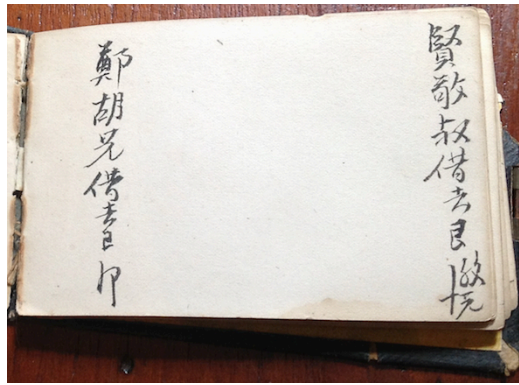 賢敬叔借去艮
鄭胡兄借去艮